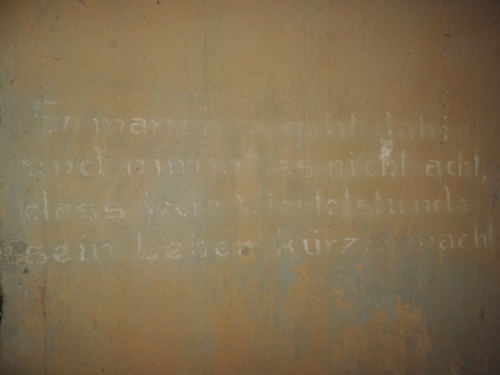 So mancher geht dahin
und nimmt es nicht acht,
dass jede Viertelstunde
sein Leben kürzer macht